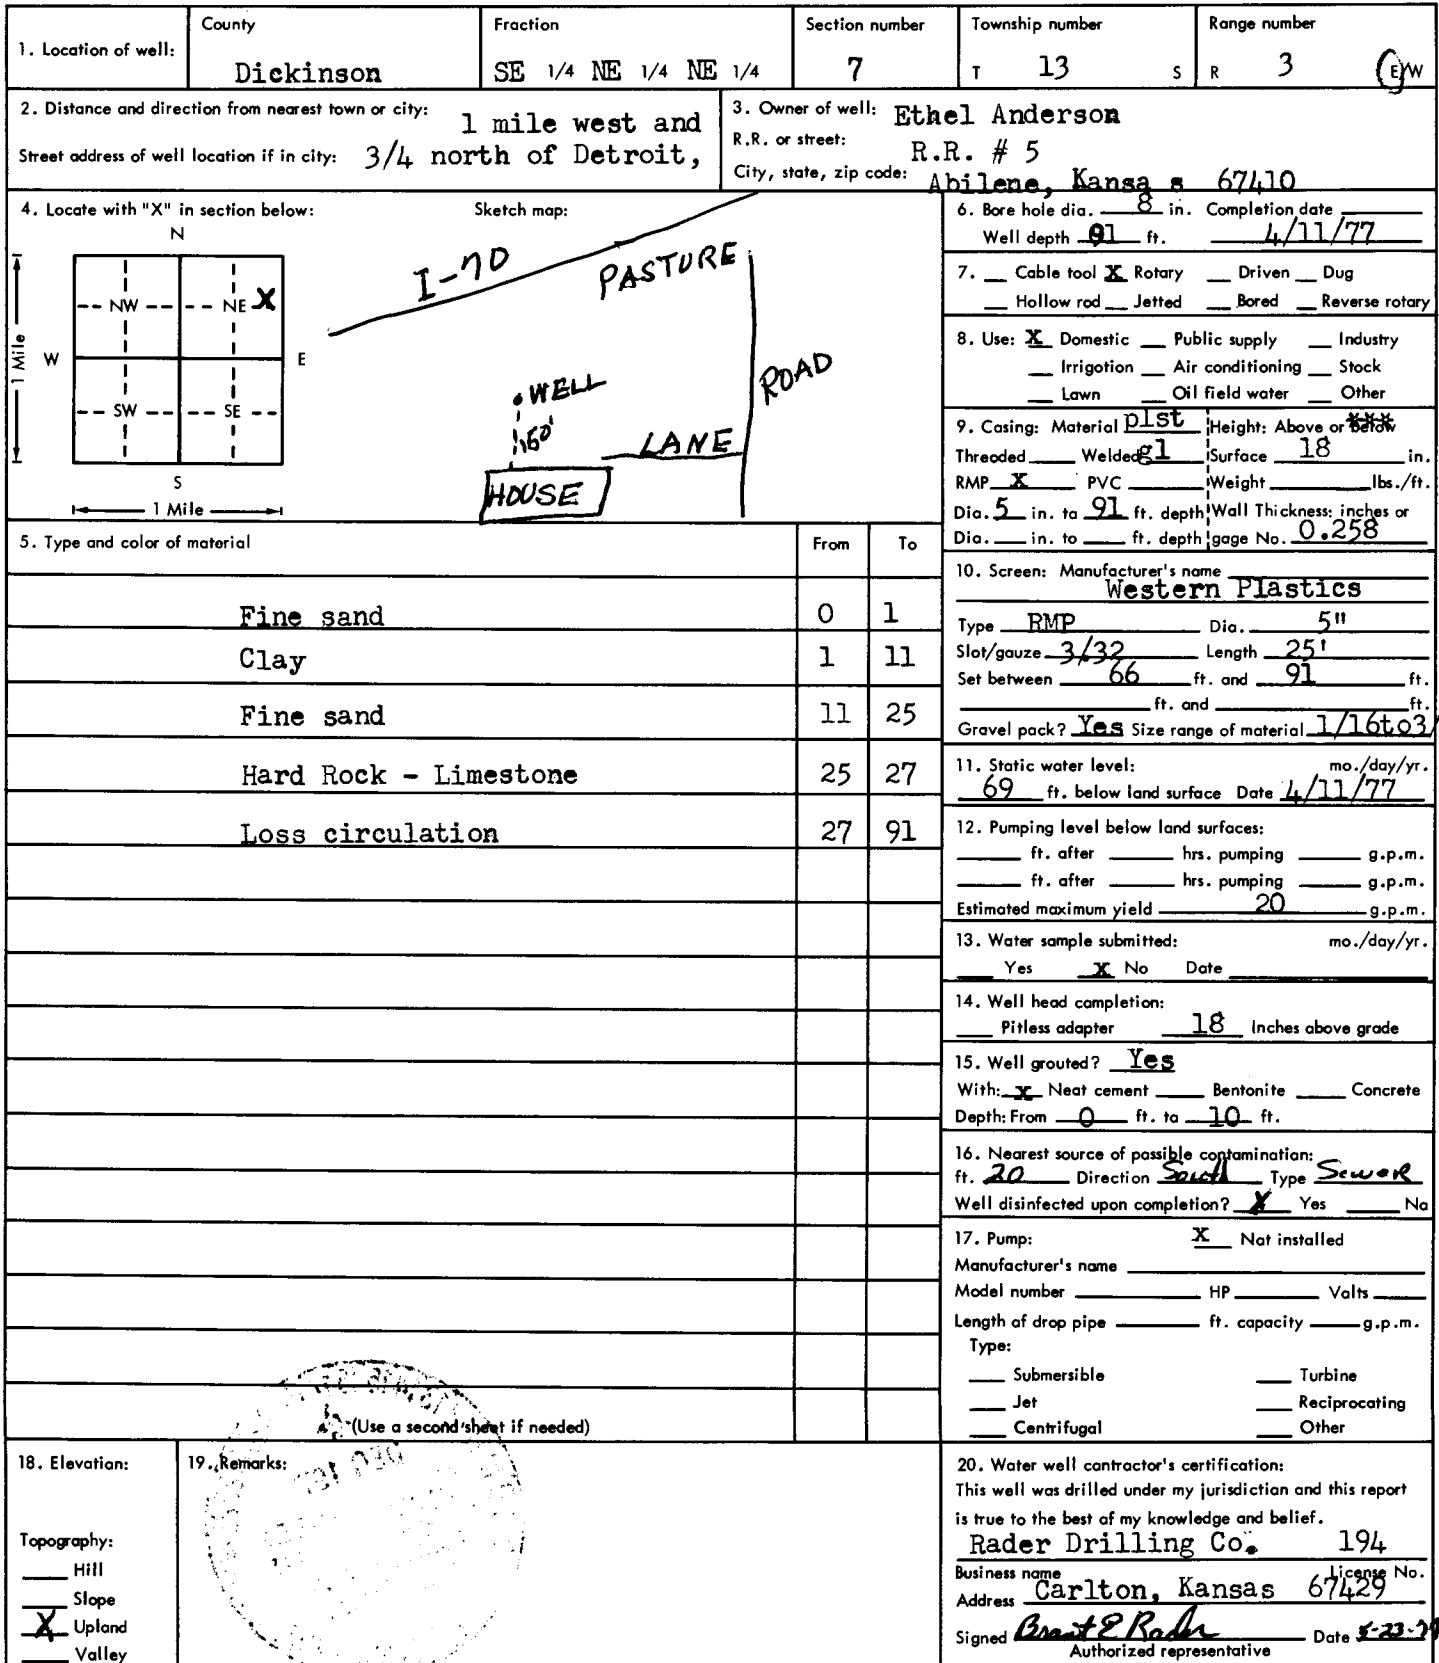 1. Location of well:
County
Dickinson
Fraction
SE 1/4 NE 1/4 NE 1/4
Section number
7
Township number
T 13 S
Range number
R 3 E/W
2. Distance and direction from nearest town or city: 1 mile west and
Street address of well location if in city: 3/4 north of Detroit,
3. Owner of well: Ethel Anderson
R.R. or street: R.R. # 5
City, state, zip code: Abilene, Kansa s 67410
4. Locate with "X" in section below:
N
NW NE X
W E
SW SE
S
1 Mile
1 Mile
Sketch map:
I-70
PASTURE
ROAD
WELL
LANE
HOUSE
5. Type and color of material From To
Fine sand 0 1
Clay 1 11
Fine sand 11 25
Hard Rock - Limestone 25 27
Loss circulation 27 91
(Use a second sheet if needed)
6. Bore hole dia. 8 in. Completion date
Well depth 91 ft. 4/11/77
7. Cable tool X Rotary Driven Dug
Hollow rod Jetted Bored Reverse rotary
8. Use: X Domestic Public supply Industry
Irrigation Air conditioning Stock
Lawn Oil field water Other
9. Casing: Material plst Height: Above or below
Threaded Welded gl Surface 18 in.
RMP X PVC Weight lbs./ft.
Dia. 5 in. to 91 ft. depth Wall Thickness: inches or
Dia. in. to ft. depth gage No. 0.258
10. Screen: Manufacturer's name
Western Plastics
Type RMP Dia. 5"
Slot/gauze 3/32 Length 25'
Set between 66 ft. and 91 ft.
ft. and ft.
Gravel pack? Yes Size range of material 1/16to3/
11. Static water level: mo./day/yr.
69 ft. below land surface Date 4/11/77
12. Pumping level below land surfaces:
ft. after hrs. pumping g.p.m.
ft. after hrs. pumping g.p.m.
Estimated maximum yield 20 g.p.m.
13. Water sample submitted: mo./day/yr.
Yes X No Date
14. Well head completion:
Pitless adapter 18 Inches above grade
15. Well grouted? Yes
With: x Neat cement Bentonite Concrete
Depth: From 0 ft. to 10 ft.
16. Nearest source of possible contamination:
ft. 20 Direction South Type Sewer
Well disinfected upon completion? X Yes No
17. Pump: X Not installed
Manufacturer's name
Model number HP Volts
Length of drop pipe ft. capacity g.p.m.
Type:
Submersible Turbine
Jet Reciprocating
Centrifugal Other
18. Elevation:
Topography:
Hill
Slope
X Upland
Valley
19. Remarks:
20. Water well contractor's certification:
This well was drilled under my jurisdiction and this report
is true to the best of my knowledge and belief.
Rader Drilling Co. 194
Business name License No.
Address Carlton, Kansas 67429
Signed Brant E Rader Date
Authorized representative